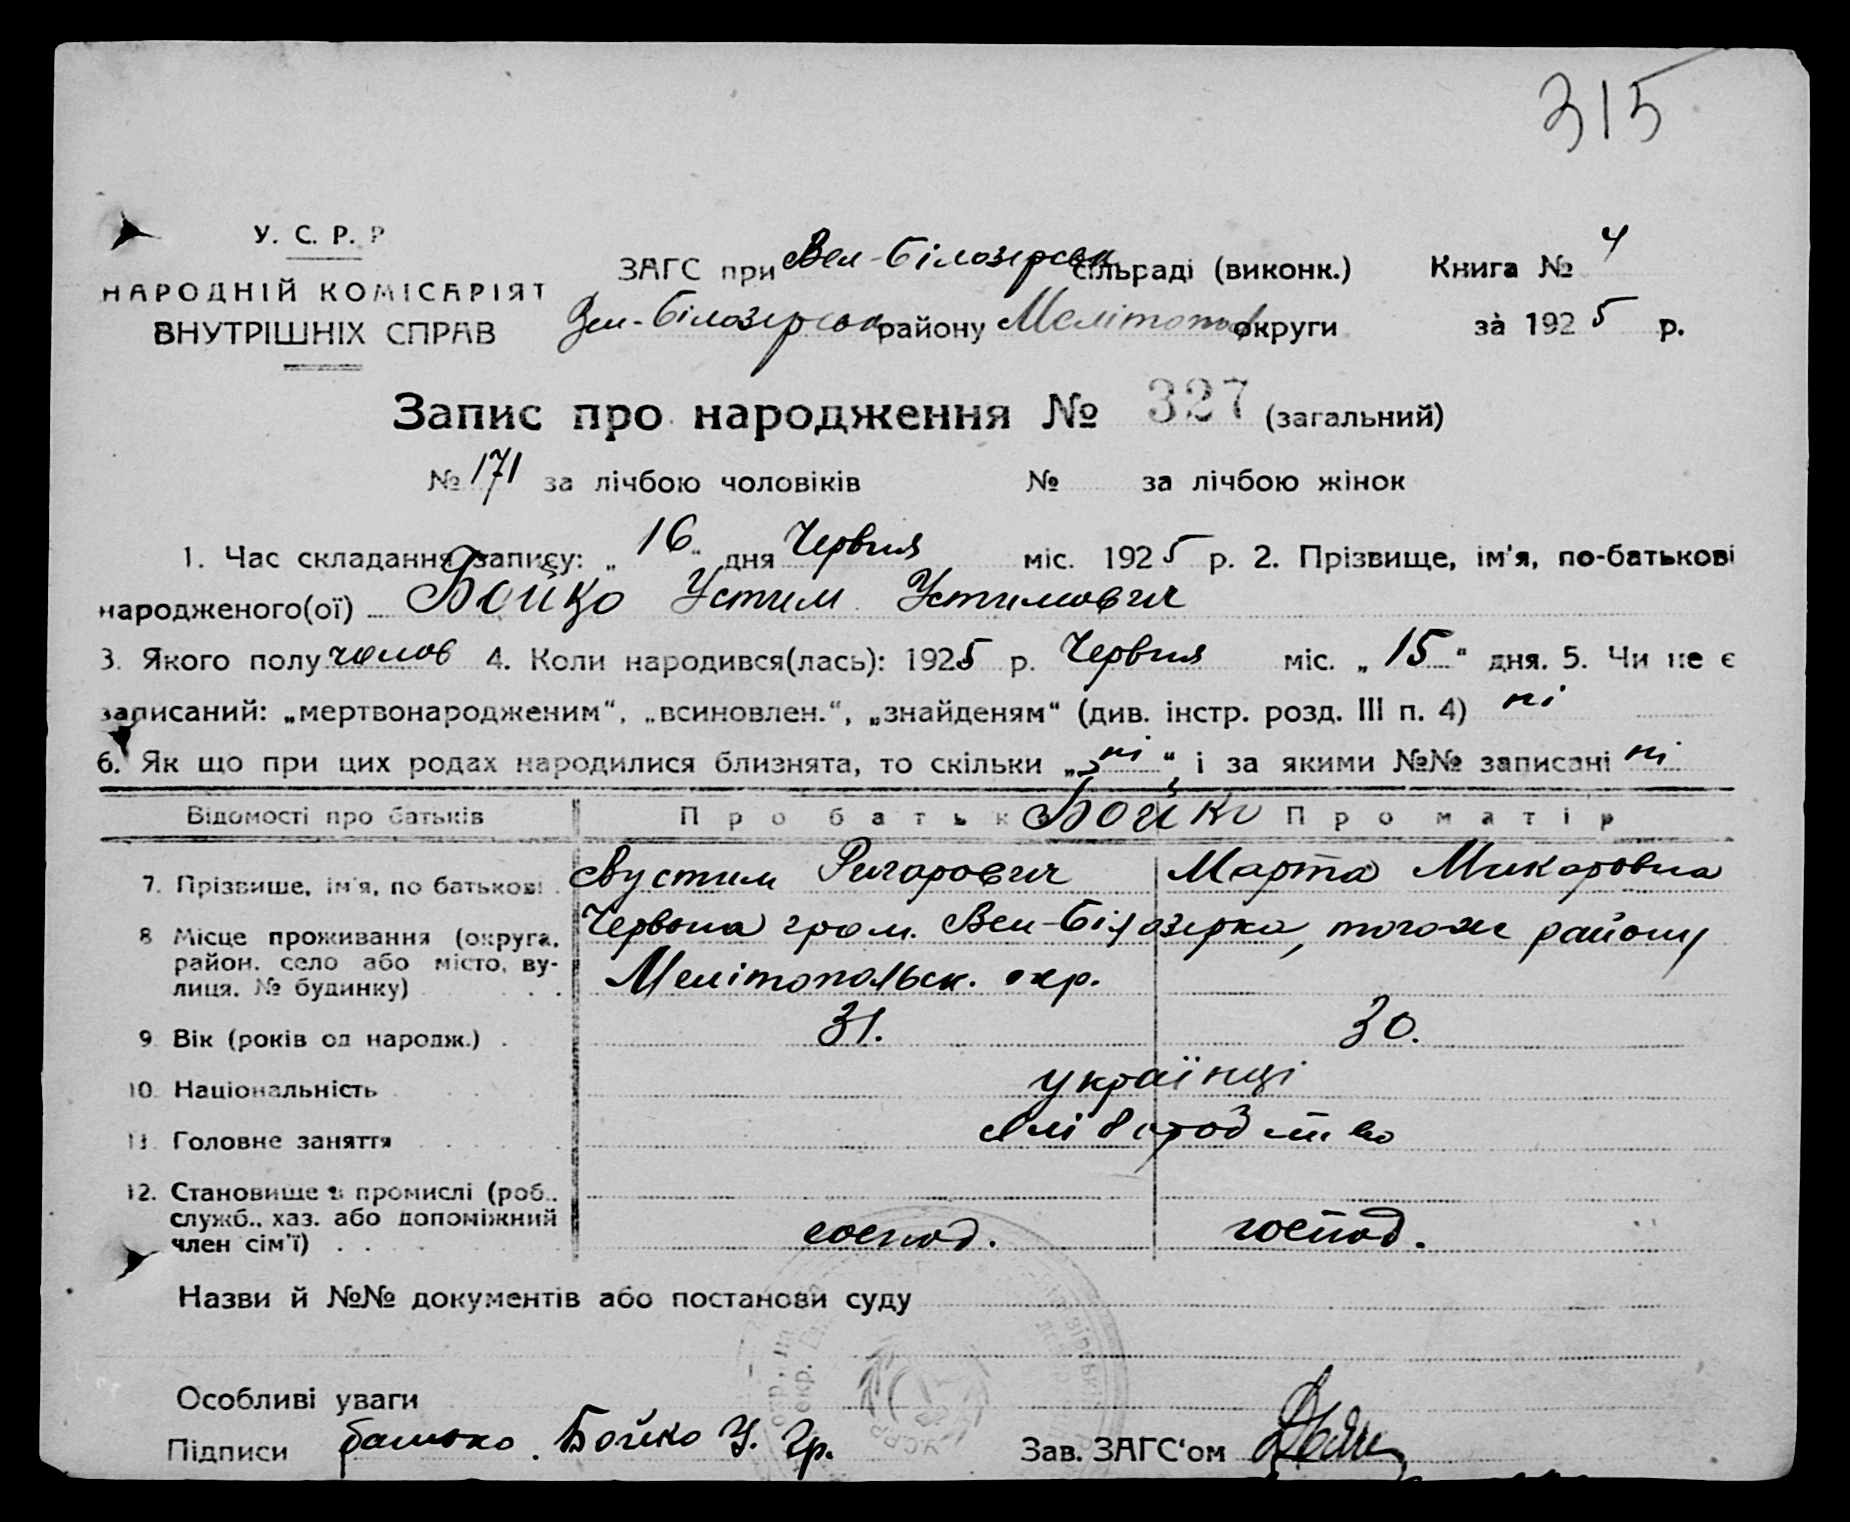 315
У. С. Р. Р
НАРОДНІЙ КОМІСАРІЯТ
ВНУТРІШНІХ СПРАВ
ЗАГС при Вел-Білозерськ сільраді (виконк.) Книга № 4
Вел-Білозерськ району Мелітопол округи за 1925 р.
Запис про народження № 327 (загальний)
№ 171 за лічбою чоловіків № за лічбою жінок
1. Час складання запису: „ 16 " дня Червня міс. 1925 р. 2. Прізвище, ім'я, по-батькові
народженого(ої) Бойко Устим Устимович
3. Якого полу чолов 4. Коли народився(лась): 1925 р. Червня міс. „ 15 " дня. 5. Чи не є
записаний: „мертвонародженим", „всиновлен.", „знайденям" (див. інстр. розд. III п. 4) ні
6. Як що при цих родах народилися близнята, то скільки „ ні " і за якими №№ записані ні
Відомості про батьків Про батька Бойко Про матір
7. Прізвише, ім'я, по батькові Густим Григорович Марта Макаровна
8 Місце проживання (округа, Червона гром. Вел-Білозерка, того-ж району
район, село або місто, ву-
лиця, № будинку) Мелітопольськ. окр.
9 Вік (років од народж.) 31. 30.
10. Національність українці
11. Головне заняття хліборобство
12. Становище в промислі (роб.,
служб., хаз. або допоміжний
член сім'ї) господ. господ.
Назви й №№ документів або постанови суду
Особливі уваги
Підписи батько. Бойко У. Гр. Зав. ЗАГС'ом
УСРР